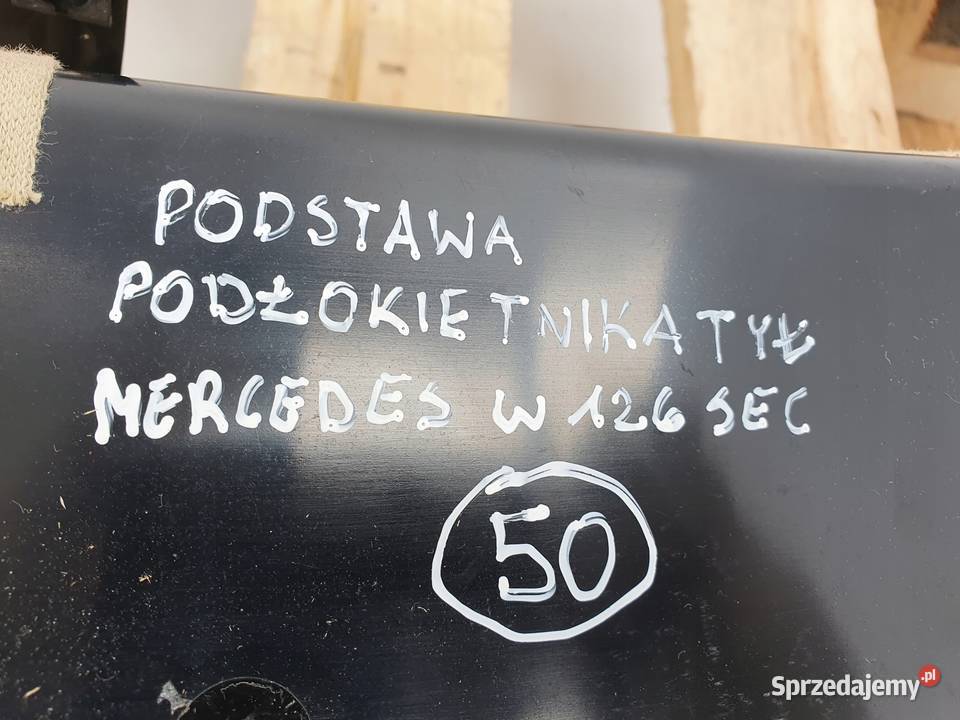 PODSTAWA
PODŁOKIETNIKA TYŁ
MERCEDES W 126 SEC
50
Sprzedajemy.pl